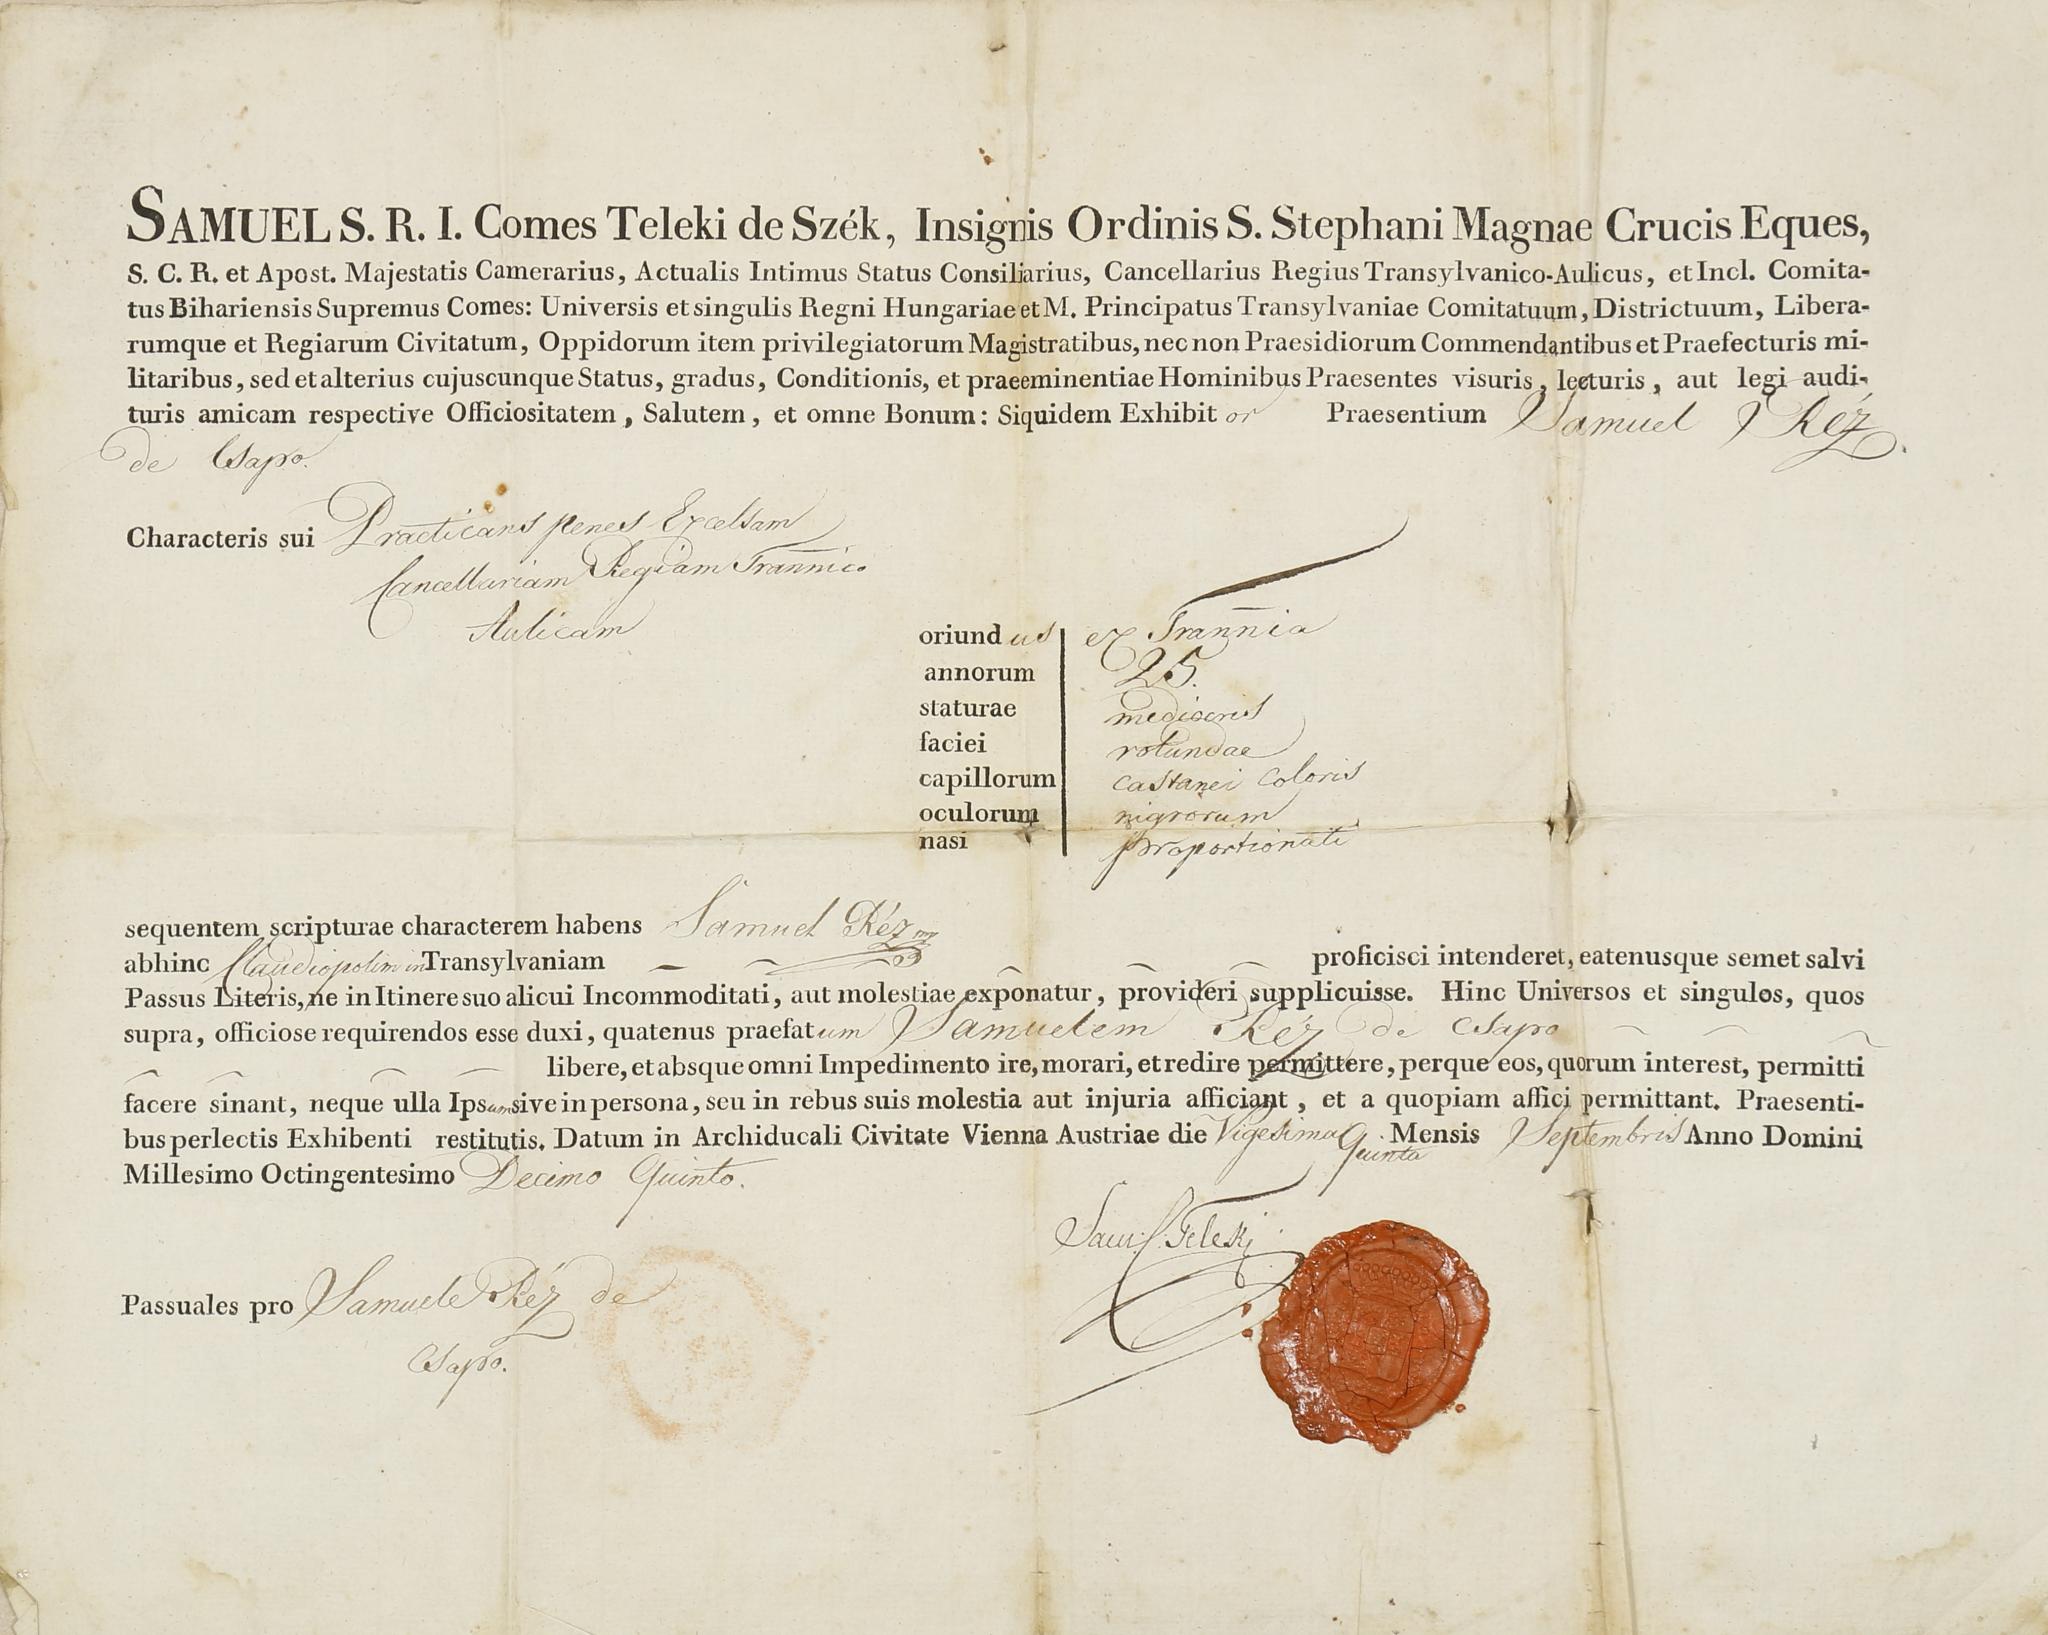 SAMUEL S. R. I. Comes Teleki de Szék, Insignis Ordinis S. Stephani Magnae Crucis Eques,
S. C. R. et Apost. Majestatis Camerarius, Actualis Intimus Status Consiliarius, Cancellarius Regius Transylvanico-Aulicus, et Incl. Comita-
tus Bihariensis Supremus Comes: Universis et singulis Regni Hungariae et M. Principatus Transylvaniae Comitatuum, Districtuum, Libera-
rumque et Regiarum Civitatum, Oppidorum item privilegiatorum Magistratibus, nec non Praesidiorum Commendantibus et Praefecturis mi-
litaribus, sed et alterius cujuscunque Status, gradus, Conditionis, et praeeminentiae Hominibus Praesentes visuris, lecturis, aut legi audi-
turis amicam respective Officiositatem, Salutem, et omne Bonum: Siquidem Exhibitor Praesentium Samuel Réz
de Csapo.
Characteris sui Practicans penes Excelsam
Cancellariam Regiam Trannico
Aulicam
oriundus ex Trannia
annorum 25.
staturae mediocris
faciei rotundae
capillorum castanei coloris
oculorum nigrorum
nasi proportionati
sequentem scripturae characterem habens Samuel Réz mp
abhinc Claudiopolim in Transylvaniam proficisci intenderet, eatenusque semet salvi
Passus Literis, ne in Itinere suo alicui Incommoditati, aut molestiae exponatur, provideri supplicuisse. Hinc Universos et singulos, quos
supra, officiose requirendos esse duxi, quatenus praefatum Samuelem Réz de Csapo
libere, et absque omni Impedimento ire, morari, et redire permittere, perque eos, quorum interest, permitti
facere sinant, neque ulla Ipsum sive in persona, seu in rebus suis molestia aut injuria afficiant, et a quopiam affici permittant. Praesenti-
bus perlectis Exhibenti restitutis. Datum in Archiducali Civitate Vienna Austriae die Vigesima Quinta Mensis Septembris Anno Domini
Millesimo Octingentesimo Decimo Quinto.
Sam. C. Teleki
Passuales pro Samuele Réz de
Csapo.